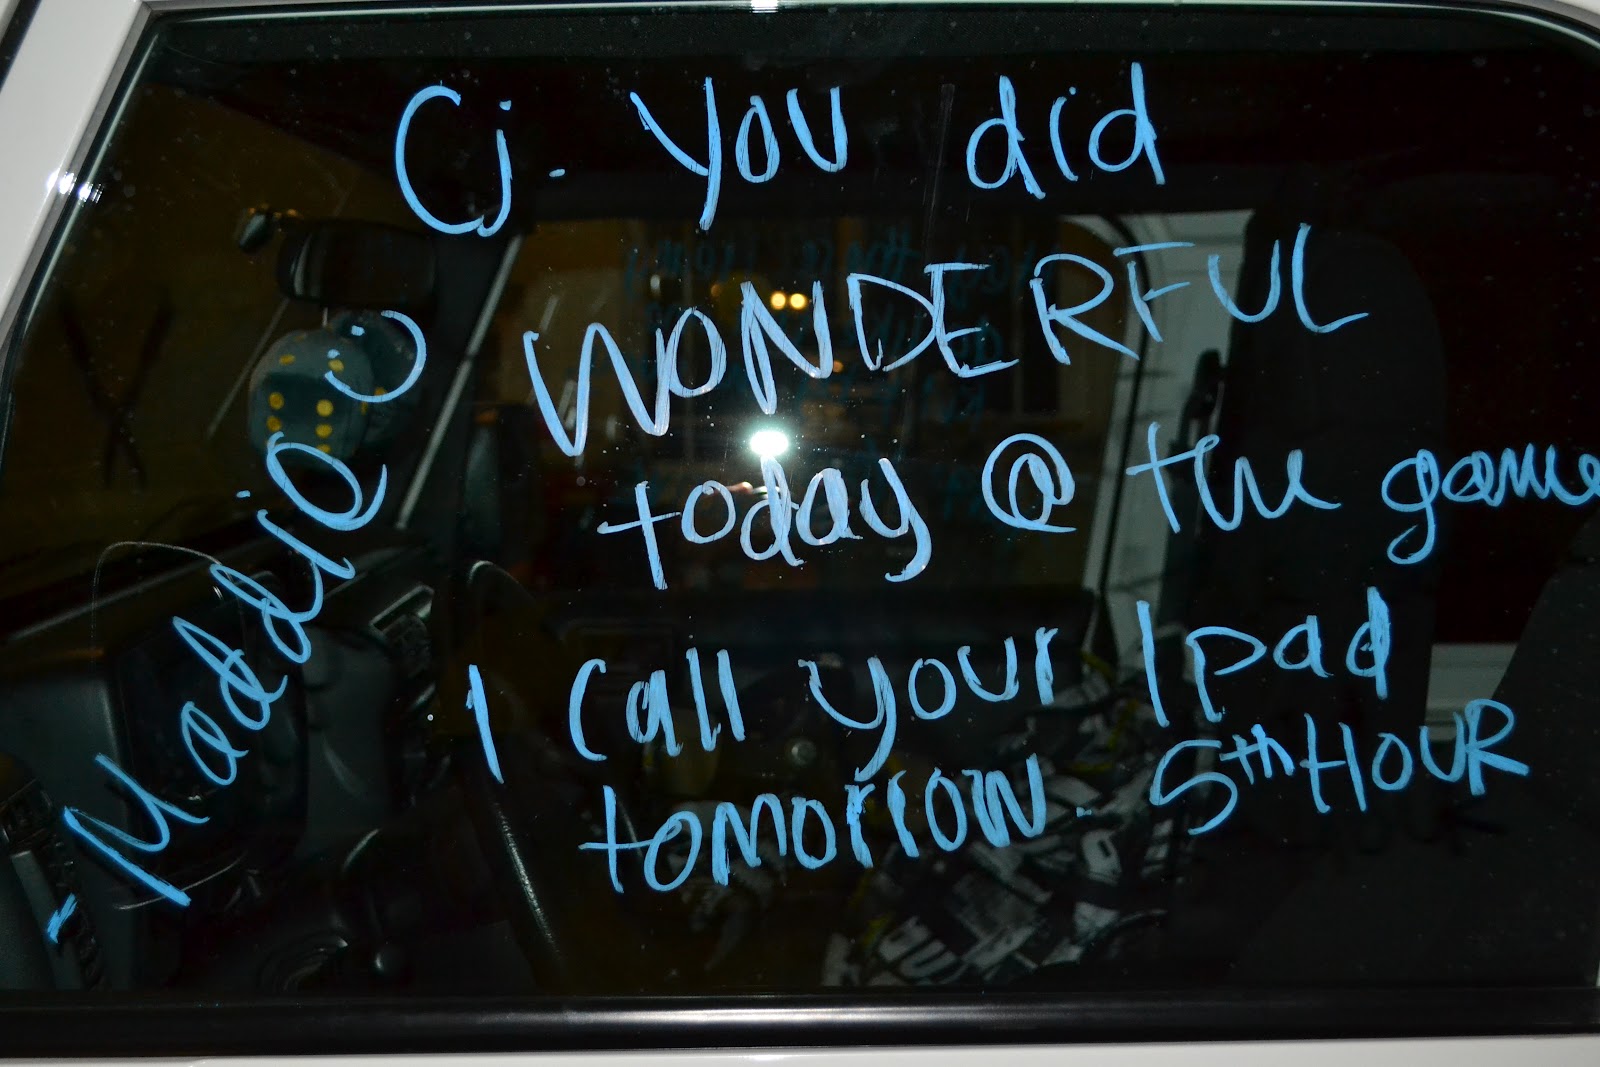 Cj. you did
WONDERFUL
today @ the game
I call your Ipad
tomorrow. 5th HOUR
- Maddie :)